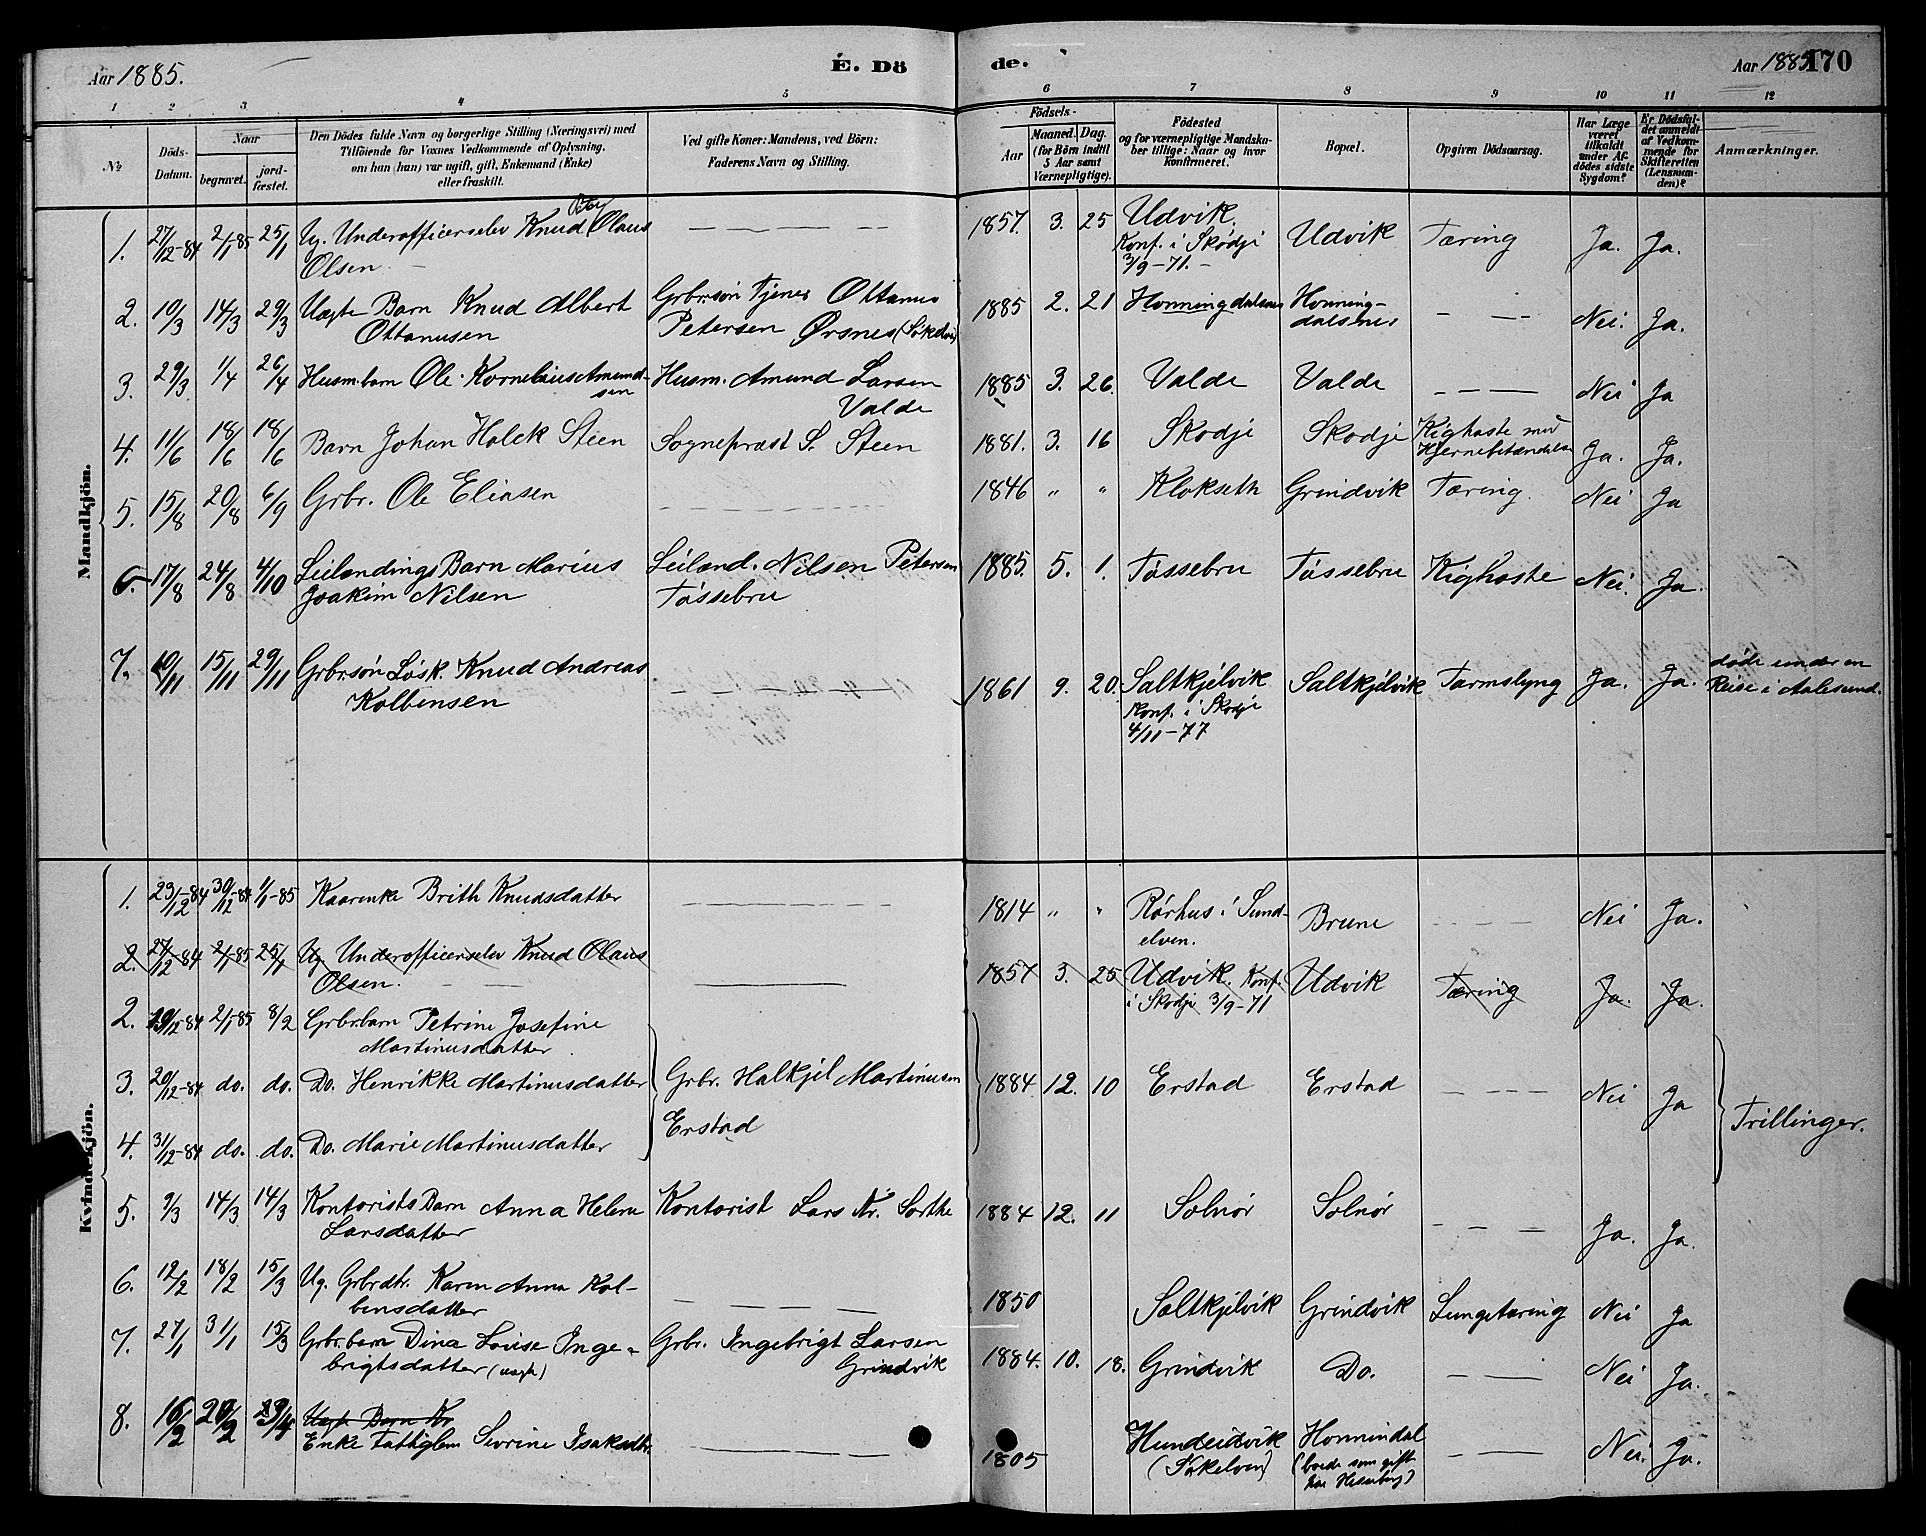 Aar 1885.
E. Dö
de.
Aar 1885.
170
1 2 3 4 5 6 7 8 9 10 11 12
No
Döds-Datum.
Naar
begravet.
jord-fæstet.
Den Dödes fulde Navn og borgerlige Stilling (Næringsvei) med
Tilföiende for Voxnes Vedkommende af Oplysning,
om han (hun) var ugift, gift, Enkemand (Enke)
eller fraskilt.
Ved gifte Koner: Mandens, ved Börn:
Faderens Navn og Stilling.
Födsels-
Aar
Maaned. Dag.
(for Börn indtil
5 Aar samt
Værnepligtige).
Födested
og for værnepligtige Mandska-
ber tillige: Naar og hvor
konfirmeret.
Bopæl.
Opgiven Dödsaarsag.
Har Læge
været
tilkaldt
under Af-
dödes sidste
Sygdom?
Er Dödsfal-
det anmeldt
af Vedkom-
mende for
Skifteretten
(Lensman-
den)?
Anmærkninger.
Mandkjön.
1. 27/12-84 2/1-85 25/1 Ug. Underofficerselev Knud Olaus
Olsen
1857. 3. 25 Udvik Konf. i Skodje 3/9-71. Udvik Tæring Ja. Ja.
2. 10/3 14/3 29/3 Uægte Barn Knud Albert
Ottanusen
Grbrsøn Tjener Ottanus
Petersen Ørsnes
1885 2. 21 Honningdalsnes Honning-
dalsnes Nei. Ja.
3. 29/3 1/4 26/4 Husm.barn Ole Kornelius Amund-
sen
Husm. Amund Larsen
Valde
1885 3. 26. Valde Valde Nei Ja
4. 11/6 18/6 18/6 Barn Johan Holck Steen Sognepræst S. Steen
1881. 3. 16 Skodje Skodje Kighoste med
Hjernebetændelse Ja. Ja.
5. 15/8 20/8 6/9 Grbr. Ole Eliasen
1846 " " Klokseth Grindvik Tæring. Nei Ja
6. 17/8 24/8 4/10 Leilændings Barn Marius
Joakim Nilsen
Leilænd. Nilsen Petersen
Tøssebru
1885. 5. 1. Tøssebru Tøssebru Kighoste Nei. Ja.
7. 10/11 15/11 29/11 Grbrsøn Løsk. Knud Andreas
Kolbensen
1861 9. 20. Saltkjelvik
Konf. i Skodje
4/11-77
Saltkjelvik Tarmslyng Ja. Ja. døde under en
Reise i Aalesund.
Kvindekjön.
1. 23/12-84 30/12-84 1/1-85 Kaarenke Brith Knudsdatter
1814 " " Rørhus i Sund-
elven. Brune Nei Ja.
2. 27/12-84 2/1-85 25/1 Ug. Underofficerselev Knud Olaus
Olsen.
1857 3. 25 Udvik. Konf.
i Skodje 3/9-71 Udvik Tæring Ja. Ja.
2. 29/12-84 2/1-85 8/2 Grbr.barn Petrine Josefine
Martinusdatter
3. 20/12-84 do. do. Do. Henrikke Martinusdatter
Grbr. Halkjel Martinusen
Erstad
1884 12. 10 Erstad Erstad Nei Ja
Trillinger.
4. 31/12-84 do. do. Do. Marie Martinusdatter
5. 9/3 14/3 14/3 Kontorists Barn Anna Helene
Larsdatter
Kontorist Lars Kr. Sorthe
1884 12. 11 Solnør Solnør Ja. Ja.
6. 12/2 18/2 15/3 Ug. Grbrdtr. Karen Anna Kol-
bensdatter
1850 Saltkjelvik Grindvik Lungetæring Nei Ja
7. 27/1 31/1 15/3 Grbr.barn Dina Louise Inge-
brigtsdatter (uægte)
Grbr. Ingebrigt Larsen
Grindvik
1884. 10. 18. Grindvik Do. Nei Ja.
8. 16/2 20/2 Uægte Barn Kr
Enke Fattiglem Sevrine Isaksdtr.
1805 Hundeidvik
(Søkelven)
Honnindal
(boede som gift
Nei. Ja.